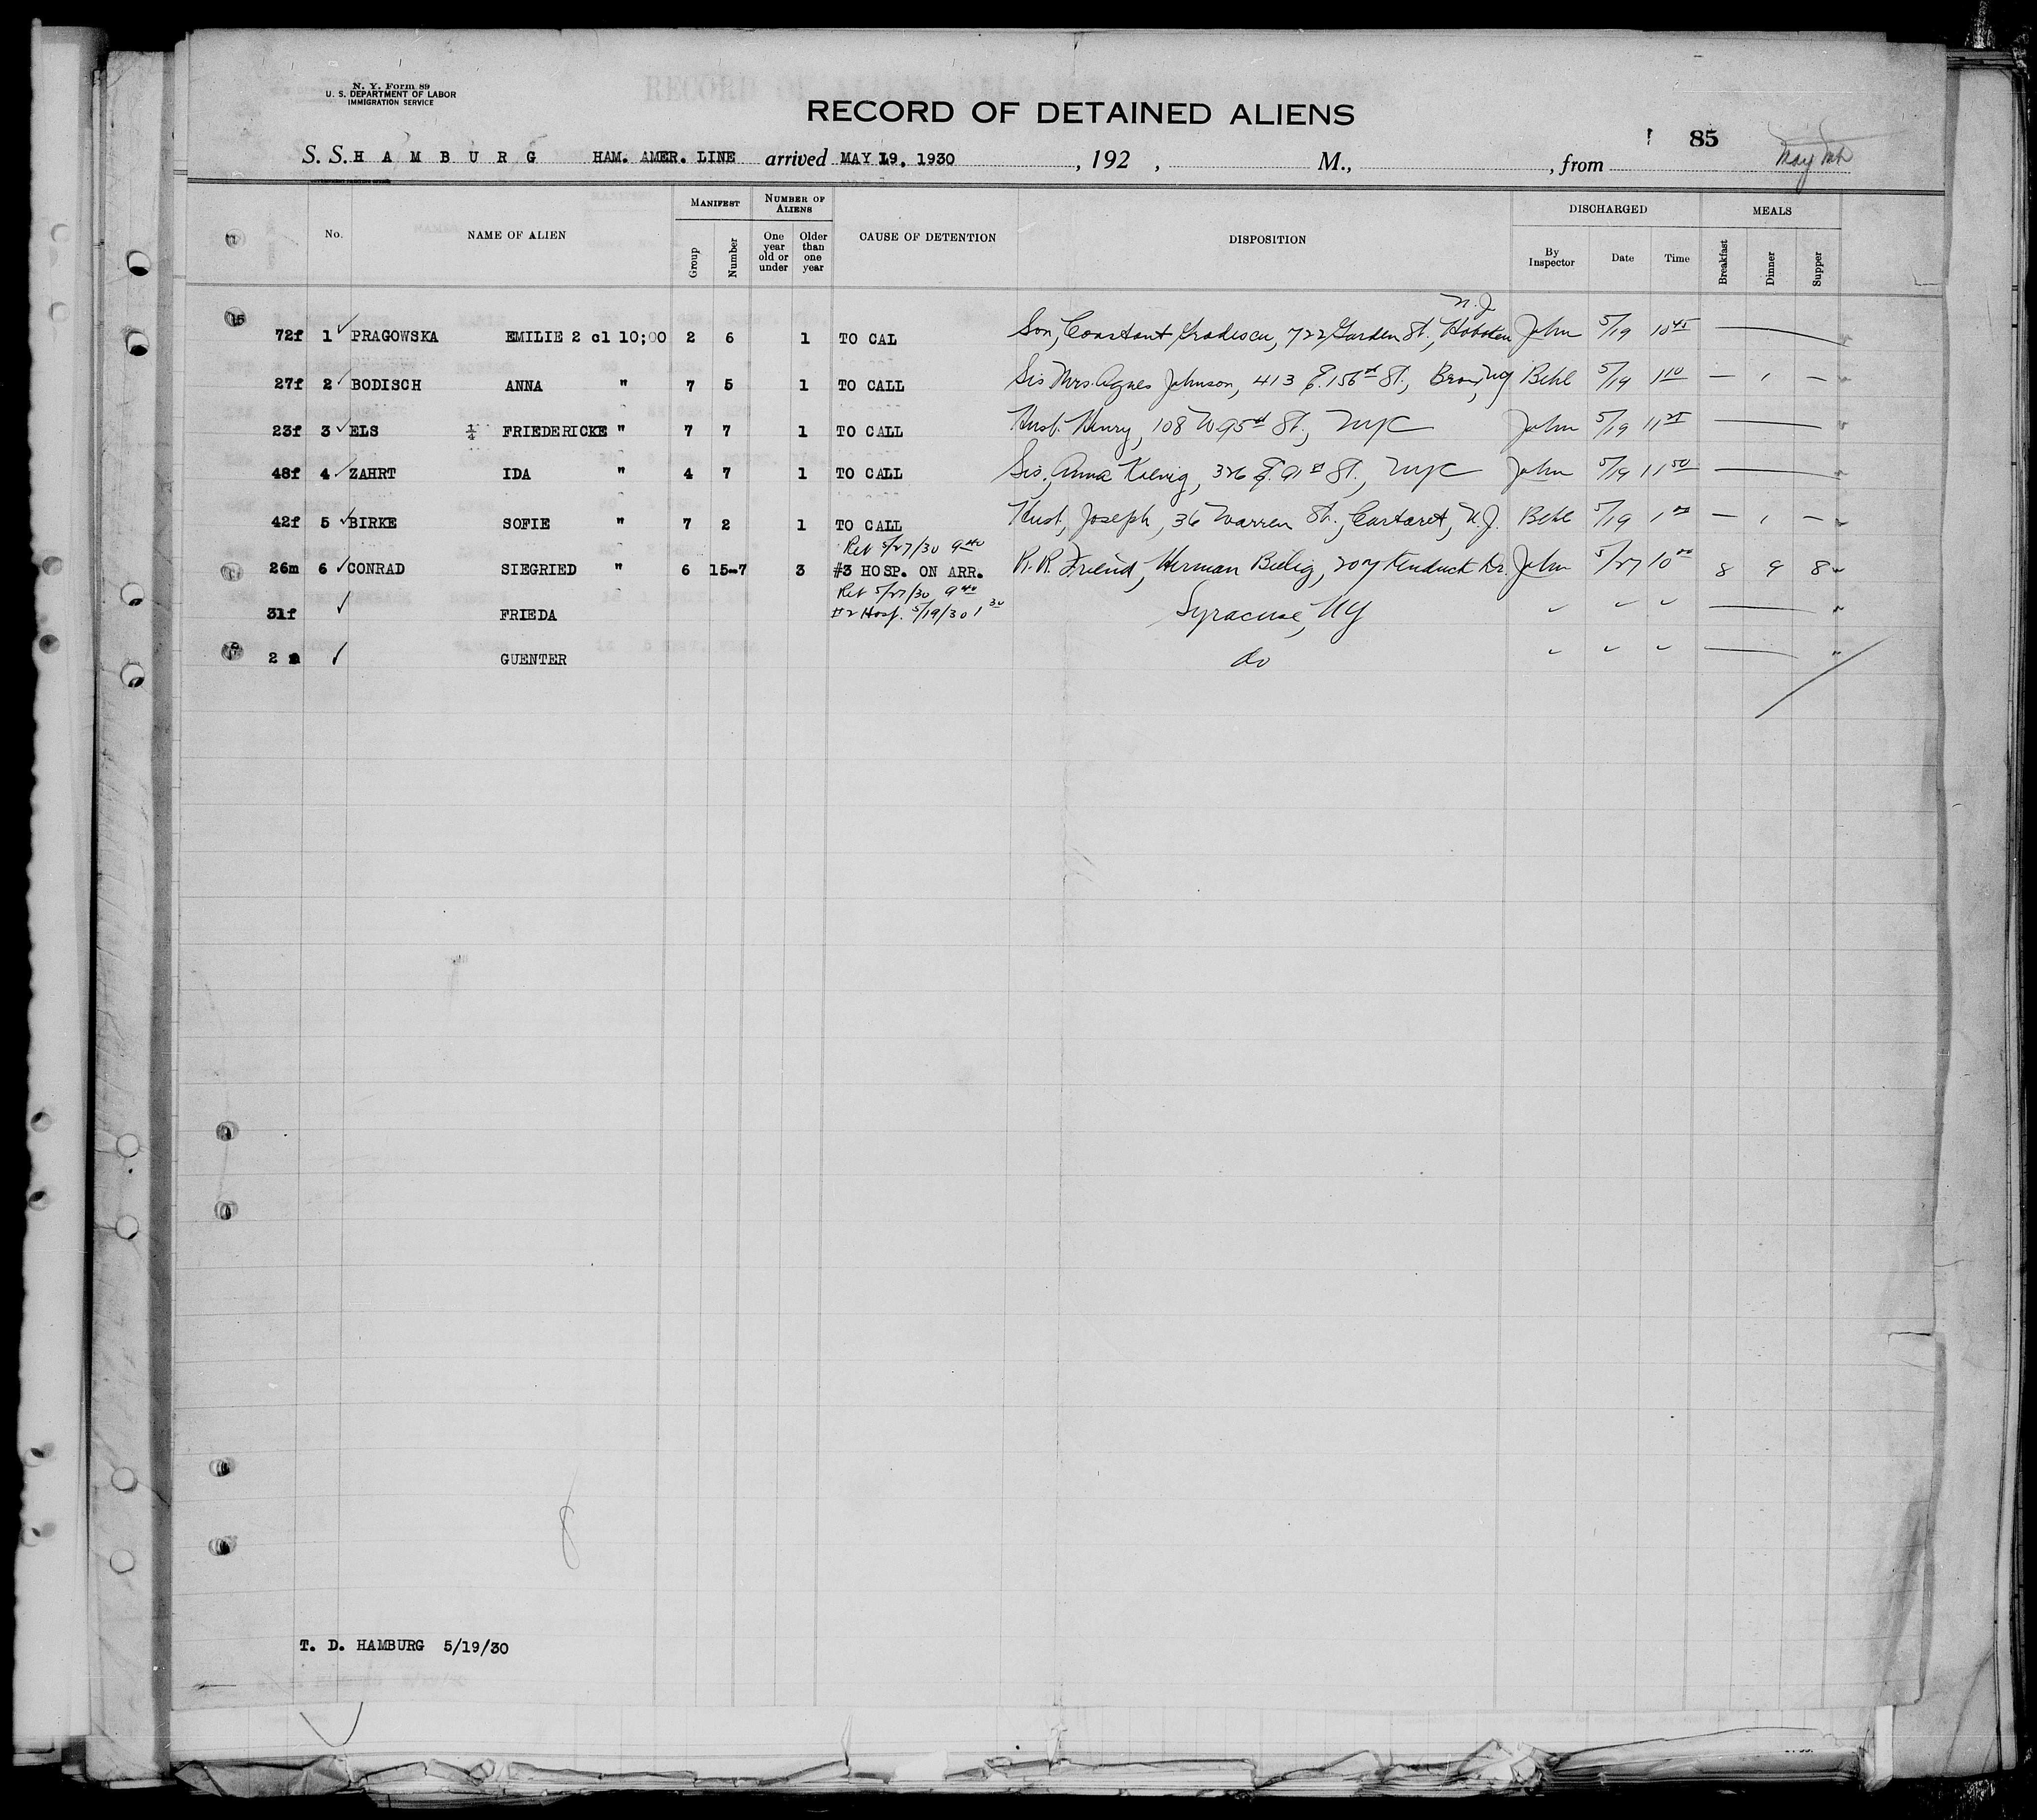 N. Y. Form 89
U. S. DEPARTMENT OF LABOR
IMMIGRATION SERVICE
RECORD OF DETAINED ALIENS
85
S. S. H A M B U R G HAM. AMER. LINE arrived MAY 19, 1930 , 192 , M., , from
No. NAME OF ALIEN MANIFEST Group Number NUMBER OF ALIENS One year old or under Older than one year CAUSE OF DETENTION DISPOSITION DISCHARGED By Inspector Date Time MEALS Breakfast Dinner Supper
N.J.
72f 1 ✓ PRAGOWSKA EMILIE 2 cl 10;00 2 6 1 TO CAL Son, Constant 722 Garden St., Hoboken John 5/19 10 45 —
27f 2 ✓ BODISCH ANNA " 7 5 1 TO CALL Sis Mrs. Agnes Johnson, 413 E. 156th St., Bronx, NY Behl 5/19 1 10 — 1 —
23f 3 ✓ ELS 1/4 FRIEDERICKE " 7 7 1 TO CALL Husb. Henry, 108 W 95th St., NYC John 5/19 11 25 —
48f 4 ✓ ZAHRT IDA " 4 7 1 TO CALL Sis., Anna Koenig, 326 E. 91st St., NYC John 5/19 11 50 —
42f 5 ✓ BIRKE SOFIE " 7 2 1 TO CALL Husb, Joseph, 36 Warren St., Cartaret, N.J. Behl 5/19 1 00 — 1 —
Ret 5/27/30 9 40
26m 6 ✓ CONRAD SIEGRIED " 6 15-7 3 #3 HOSP. ON ARR. R.R. Friend, Herman 207 Dr. John 5/27 10 00 8 9 8
Ret 5/27/30 9 40
31f ✓ FRIEDA #2 Hosp. 5/19/30 1 30 Syracuse, NY ✓ ✓ ✓ —
2 m ✓ GUENTER do ✓ ✓ ✓ —
8
T. D. HAMBURG 5/19/30